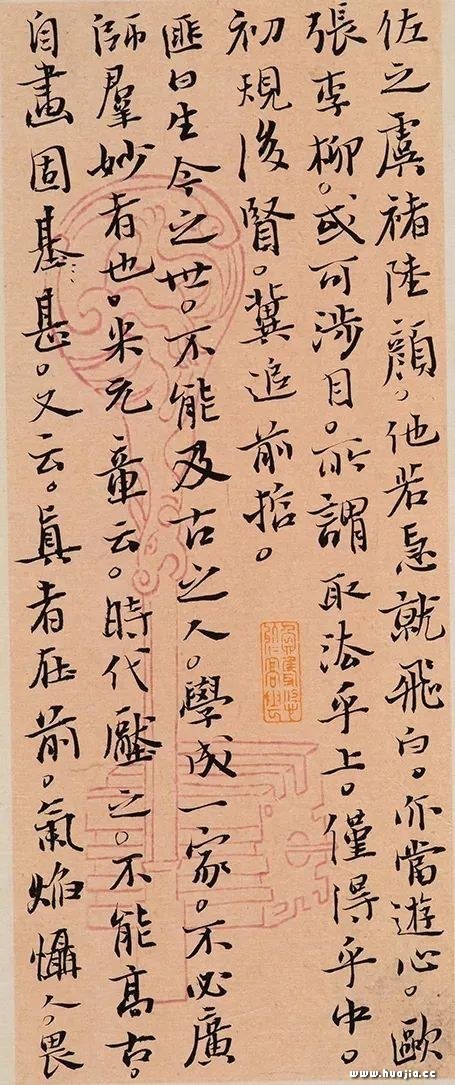 佐之虞褚陸顏。他若急就飛白。亦當遊心。歐
張李柳。或可涉目。所謂取法乎上。僅得乎中。
初規後賢。冀追前哲。
匪曰生今之世。不能及古之人。學成一家。不必廣
師羣妙者也。米元章云。時代壓之。不能高古。
自畫固基甚。又云。眞者在前。氣焰懾人。畏
www.huajia.cc